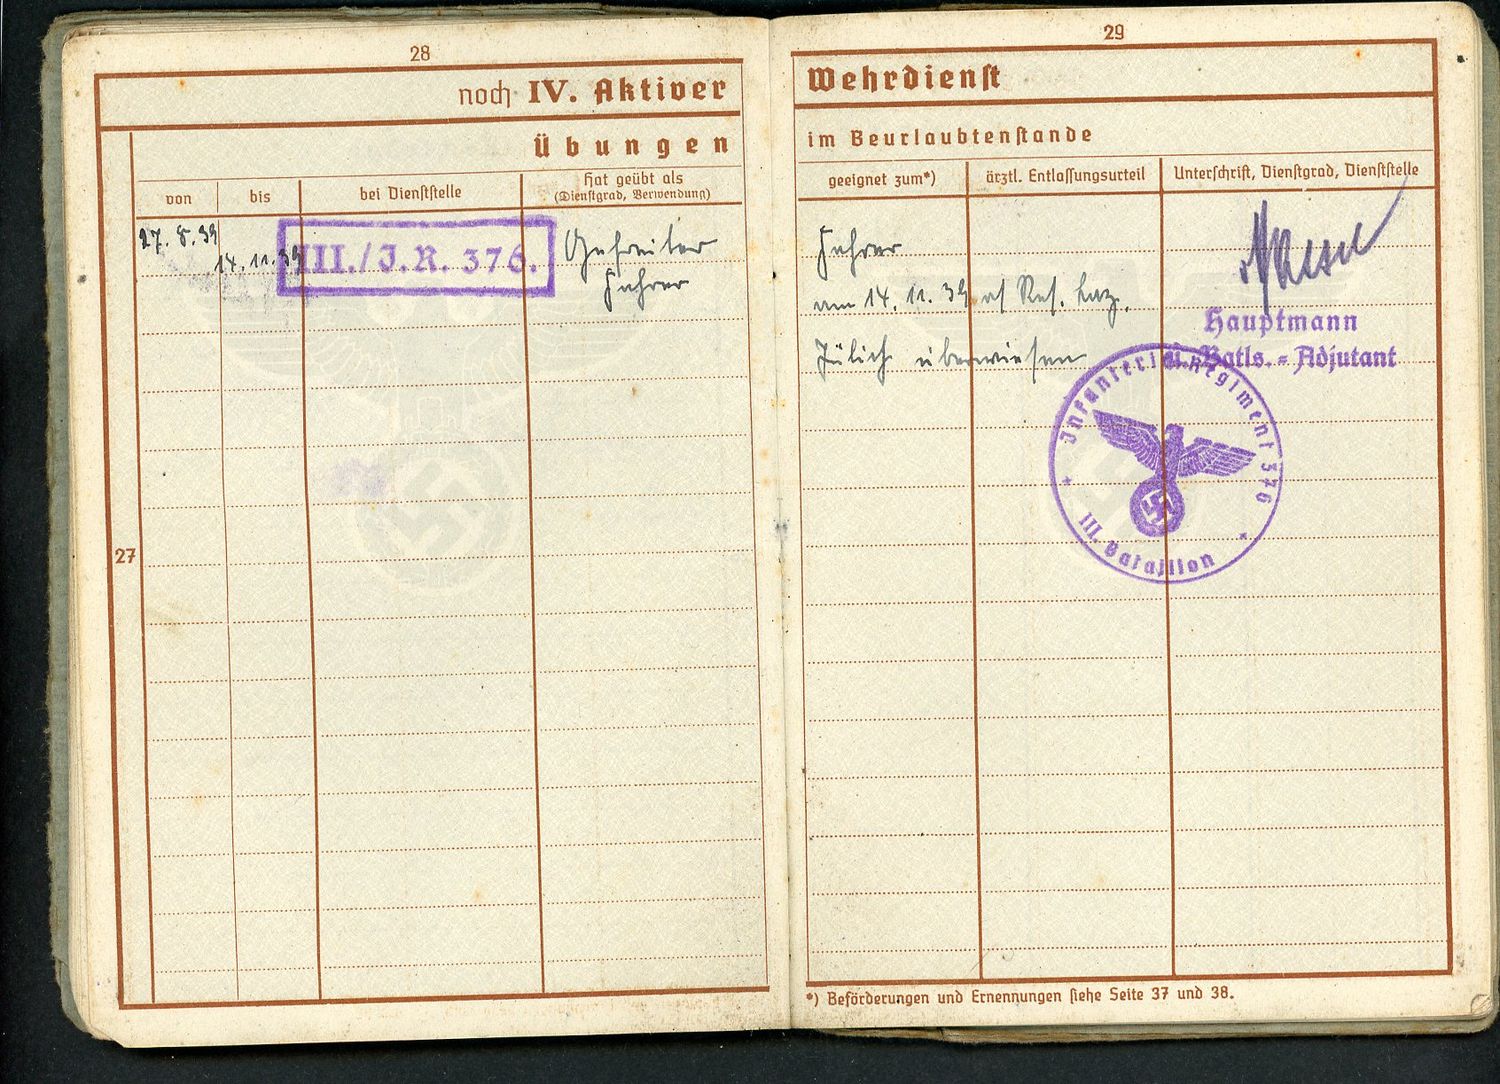 28
noch IV. Aktiver
Übungen
von
bis
bei Dienststelle
Hat geübt als
(Dienstgrad, Verwendung)
27. 8. 39
14. 11. 39
III./J.R. 376.
Gefreiter
Fahrer
27
29
Wehrdienst
im Beurlaubtenstande
geeignet zum*)
ärztl. Entlassungsurteil
Unterschrift, Dienstgrad, Dienststelle
Fahrer
am 14. 11. 39 Res. Laz.
Jülich überwiesen
Hauptmann
u. Batls.=Adjutant
Infanterie-Regiment 376
III. Bataillon
*) Beförderungen und Ernennungen siehe Seite 37 und 38.